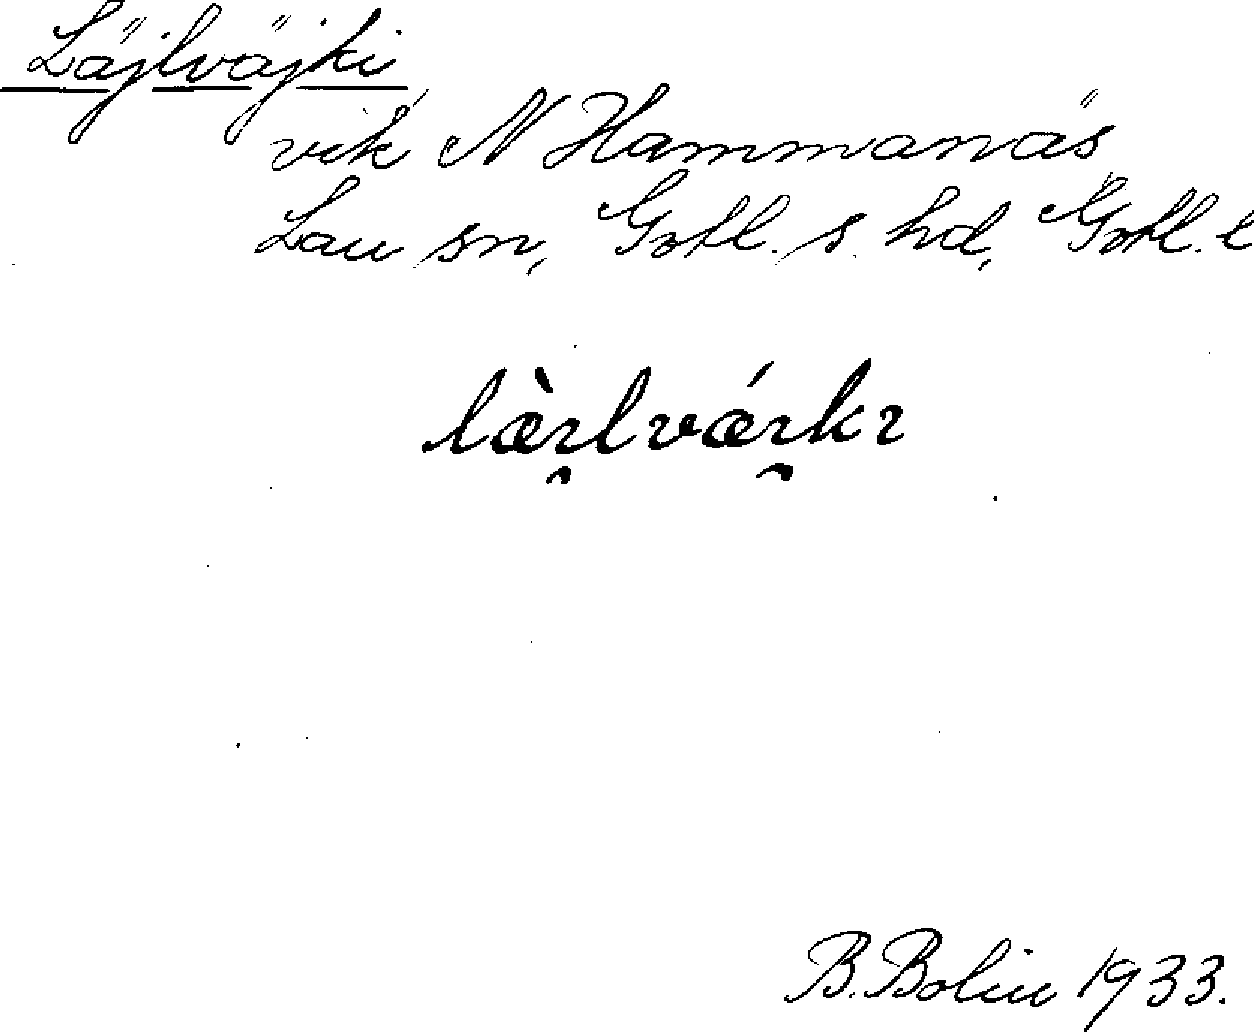 Läjlväjki
vik N Hammanäs
Lau sn, Gotl. s. hd, Gotl. l
læ̀ɪ̯lvǽɪ̯kɪ
B. Bolin 1933.